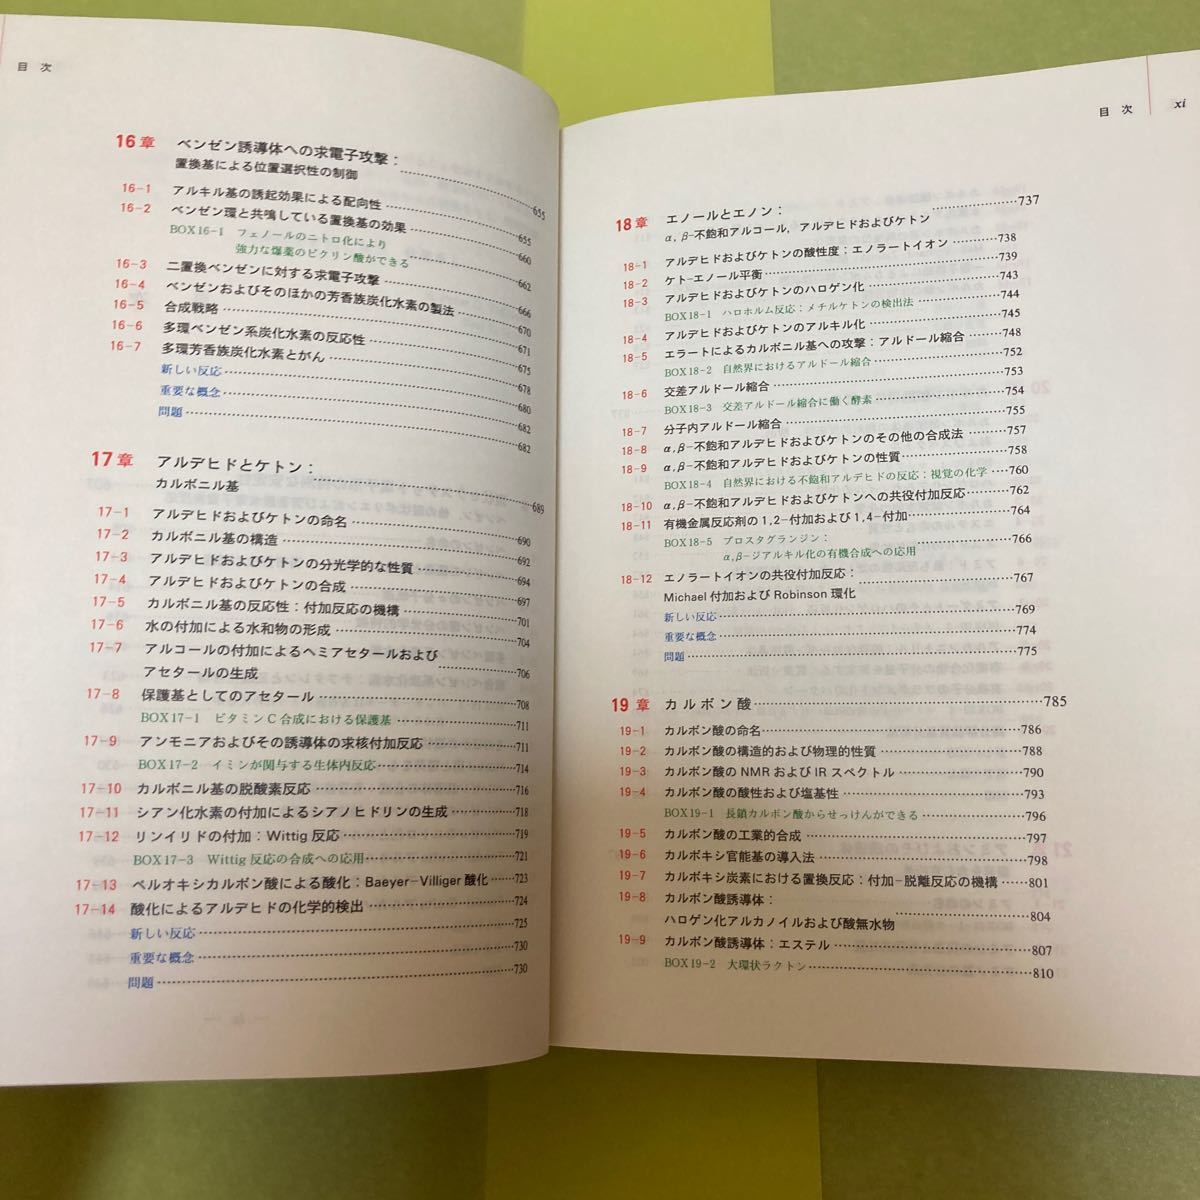 目 次
16章 ベンゼン誘導体への求電子攻撃：
置換基による位置選択性の制御 655
16-1 アルキル基の誘起効果による配向性 655
16-2 ベンゼン環と共鳴している置換基の効果 660
BOX16-1 フェノールのニトロ化により
強力な爆薬のピクリン酸ができる 662
16-3 二置換ベンゼンに対する求電子攻撃 666
16-4 ベンゼンおよびそのほかの芳香族炭化水素の製法 670
16-5 合成戦略 671
16-6 多環ベンゼン系炭化水素の反応性 675
16-7 多環芳香族炭化水素とがん 678
新しい反応 680
重要な概念 682
問題 682
17章 アルデヒドとケトン：
カルボニル基 689
17-1 アルデヒドおよびケトンの命名 690
17-2 カルボニル基の構造 692
17-3 アルデヒドおよびケトンの分光学的な性質 694
17-4 アルデヒドおよびケトンの合成 697
17-5 カルボニル基の反応性：付加反応の機構 701
17-6 水の付加による水和物の形成 704
17-7 アルコールの付加によるヘミアセタールおよび
アセタールの生成 706
17-8 保護基としてのアセタール 708
BOX17-1 ビタミンC合成における保護基 711
17-9 アンモニアおよびその誘導体の求核付加反応 711
BOX17-2 イミンが関与する生体内反応 714
17-10 カルボニル基の脱酸素反応 716
17-11 シアン化水素の付加によるシアノヒドリンの生成 718
17-12 リンイリドの付加：Wittig 反応 719
BOX17-3 Wittig 反応の合成への応用 721
17-13 ペルオキシカルボン酸による酸化：Baeyer-Villiger 酸化 723
17-14 酸化によるアルデヒドの化学的検出 724
新しい反応 725
重要な概念 730
問題 730
目 次 xi
18章 エノールとエノン： 737
α, β-不飽和アルコール，アルデヒドおよびケトン
18-1 アルデヒドおよびケトンの酸性度：エノラートイオン 738
18-2 ケト-エノール平衡 739
18-3 アルデヒドおよびケトンのハロゲン化 743
BOX18-1 ハロホルム反応：メチルケトンの検出法 744
18-4 アルデヒドおよびケトンのアルキル化 745
18-5 エラートによるカルボニル基への攻撃：アルドール縮合 748
BOX18-2 自然界におけるアルドール縮合 752
18-6 交差アルドール縮合 753
BOX18-3 交差アルドール縮合に働く酵素 754
18-7 分子内アルドール縮合 755
18-8 α,β-不飽和アルデヒドおよびケトンのその他の合成法 757
18-9 α,β-不飽和アルデヒドおよびケトンの性質 758
BOX18-4 自然界における不飽和アルデヒドの反応：視覚の化学 760
18-10 α,β-不飽和アルデヒドおよびケトンへの共役付加反応 762
18-11 有機金属反応剤の1,2-付加および1,4-付加 764
BOX18-5 プロスタグランジン：
α,β-ジアルキル化の有機合成への応用 766
18-12 エノラートイオンの共役付加反応：
Michael 付加および Robinson 環化 767
新しい反応 769
重要な概念 774
問題 775
19章 カルボン酸 785
19-1 カルボン酸の命名 786
19-2 カルボン酸の構造的および物理的性質 788
19-3 カルボン酸の NMR および IR スペクトル 790
19-4 カルボン酸の酸性および塩基性 793
BOX19-1 長鎖カルボン酸からせっけんができる 796
19-5 カルボン酸の工業的合成 797
19-6 カルボキシ官能基の導入法 798
19-7 カルボキシ炭素における置換反応：付加-脱離反応の機構 801
19-8 カルボン酸誘導体：
ハロゲン化アルカノイルおよび酸無水物 804
19-9 カルボン酸誘導体：エステル 807
BOX19-2 大環状ラクトン 810